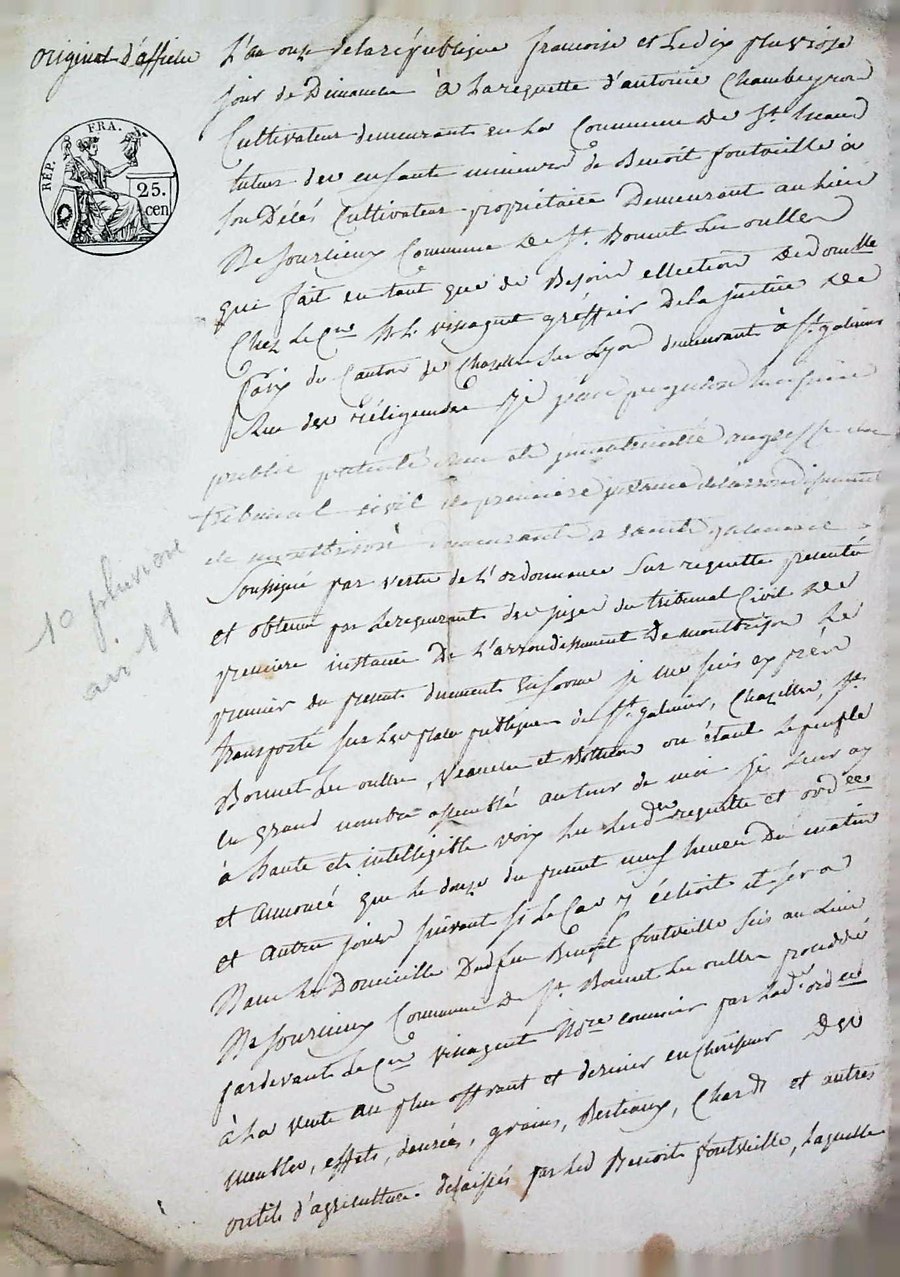 original d'affiche
RÉP. FRA.
25.
cen
10 pluviose
an 11
L'an onze de la république francoise et Le dix pluviose
jour de Dimanche à La requette d'antoine Chambeyron
Cultivateur demeurant en La Commune de St.
tuteur des enfants mineurs de Benoit fontvieille à
son Décés Cultivateur propriétaire Demeurant au Lieu
De Sourcieux Commune de St. Bonnet Les oulles
qui fait en tant que de Besoin ellection de domlle
Chez Le Cen vissaguet gréffier de la justice de
Paix du Canton de Chazelle sur Lyon demeurant à St. galmier
Rue des réligieuses Je jean huissier
public patenté sous le immatriculé au greffe du
tribunal civil de premiere instance de l'arrondissement
de montbrison demeurant a saint galmier
Soussigné par vertu de L'ordonnance sur requette presentée
et obtenue par Le requerant des juges du tribunal Civil de
premiere instance de L'arrondissement De montbrison Le
premier du present duement en forme je me suis exprès
transporté sur Les places publiques de St. galmier, Chazelles, St.
Bonnet Les oulles, Veauche et où étant Le peuple
en grand nombre assemblé autour de moi je Leur ay
à haute et intelligible voix Lu Lesdes requette et ordce
et annoncé que Le douze du present neuf heures Du matin
et autres jours suivant si Le Cas y échoit il sera
Dans Le Domicille Dud feu Benoit fontvieille sis au Lieu
De Sourcieux Commune De St. Bonnet Les oulles procédé
pardevant Le Cen vissaguet Nore commis par Lade ordce
à La vente au plus offrant et dernier encherisseur Des
meubles, effets, denrées, grains, Bestiaux, Chars et autres
outils d'agriculture delaissés par Led Benoit fontvieille, Laquelle